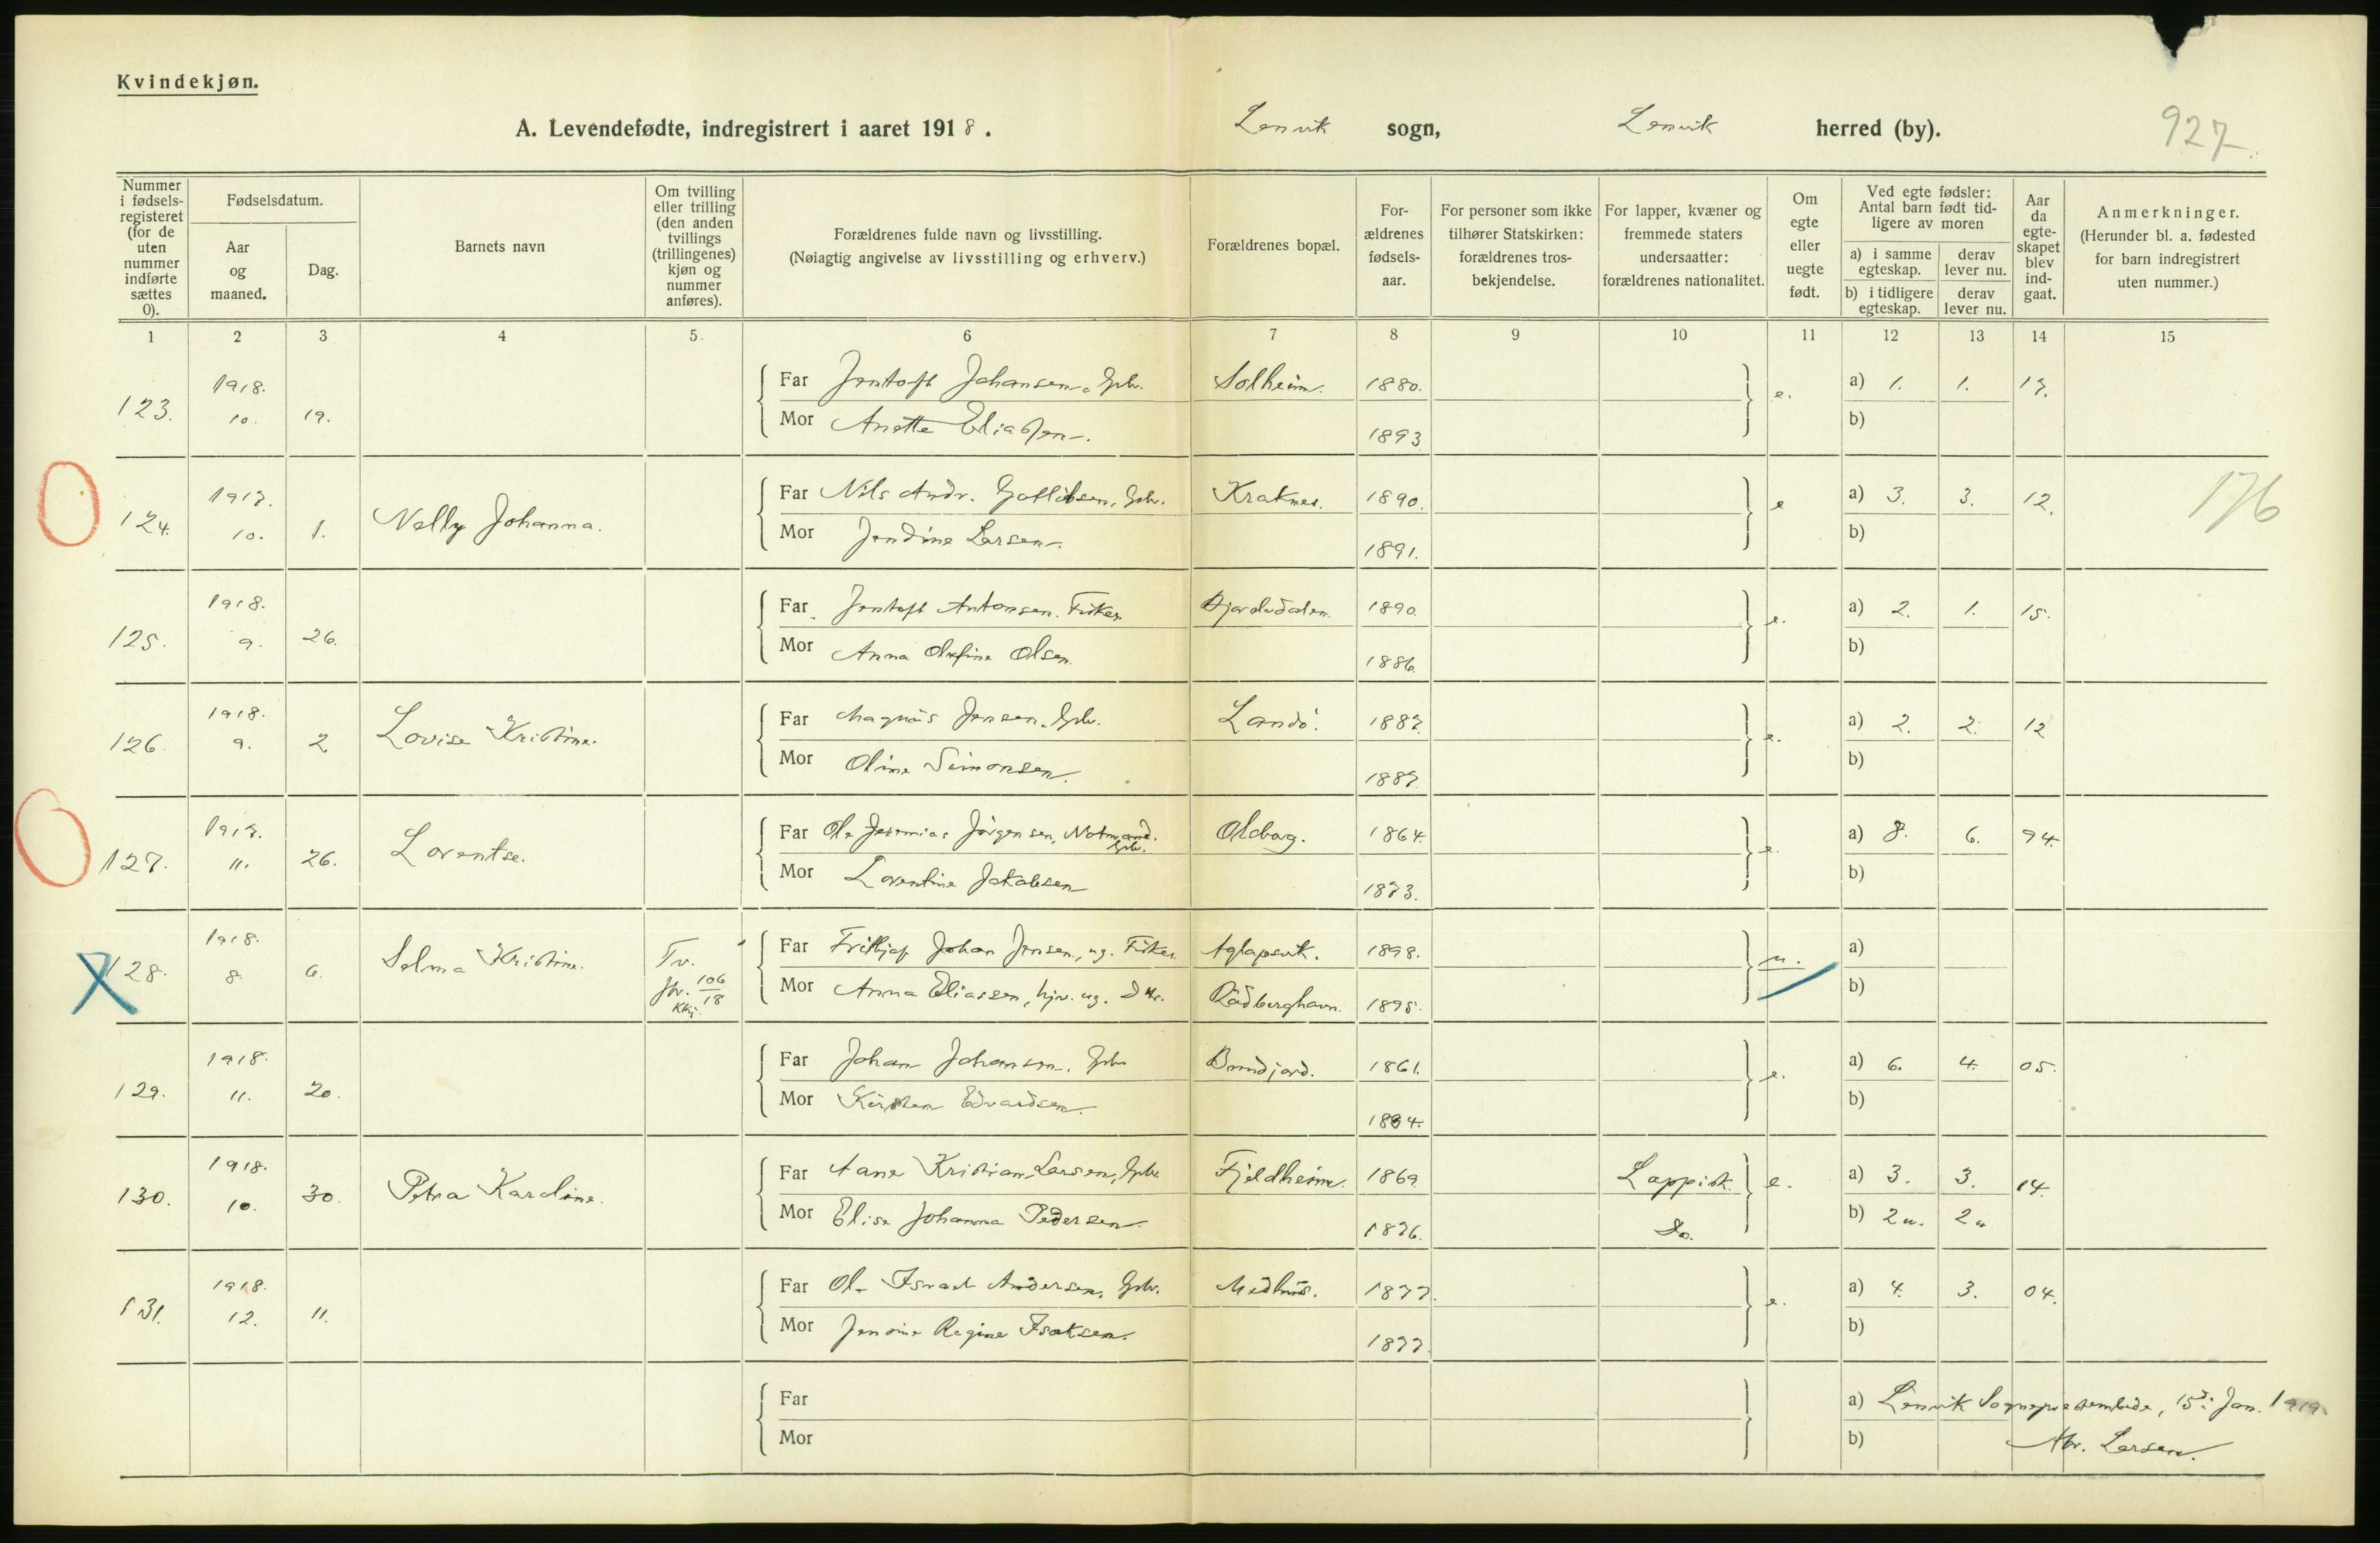 Kvindekjøn.
A. Levendefødte, indregistrert i aaret 1918. Lenvik sogn, Lenvik herred (by). 927.
Nummer i fødsels-registeret (for de uten nummer indførte sættes 0).
Fødselsdatum.
Aar og maaned.
Dag.
Barnets navn
Om tvilling eller trilling (den anden tvillings (trillingenes) kjøn og nummer anføres).
Forældrenes fulde navn og livsstilling.
(Nøiagtig angivelse av livsstilling og erhverv.)
Forældrenes bopæl.
For-ældrenes fødsels-aar.
For personer som ikke tilhører Statskirken: forældrenes tros-bekjendelse.
For lapper, kvæner og fremmede staters undersaatter: forældrenes nationalitet.
Om egte eller uegte født.
Ved egte fødsler: Antal barn født tid-ligere av moren
a) i samme egteskap. derav lever nu.
b) i tidligere egteskap. derav lever nu.
Aar da egte-skapet blev ind-gaat.
Anmerkninger.
(Herunder bl. a. fødested for barn indregistrert uten nummer.)
1 2 3 4 5. 6 7 8 9 10 11 12 13 14 15
123. 1918. 10. 19. Far Jentoft Johansen, Gbr. Solheim. 1880. e. a) 1. 1. 17.
Mor Anette Eliassen. 1893 b)
124. 1917. 10. 1. Nelly Johanna. Far Nils Andr. Gotlibsen, Gbr. Kraknes. 1890. e a) 3. 3. 12. 176
Mor Jendine Larsen. 1891. b)
125. 1918. 9. 26. Far Jentoft Antonsen. Fisker 1890. e. a) 2. 1. 15.
Mor Anna Olsen. 1886. b)
126. 1918. 9. 2 Lovise Kristine. Far Magnus Jensen. Gbr. Landø. 1887. e. a) 2. 2. 12
Mor Oline Simonsen. 1887. b)
127. 1917. 11. 26. Lorentse. Far Ole Jeremias Jørgensen, Notmand. Gbr. Olderg. 1864. e. a) 8. 6. 94.
Mor Lorentine Jakobsen 1873. b)
128. 1918. 8. 6. Selma Kristine. Tv. 106/18 Kkj. Far Fritjof Johan Jensen, ug. Fisker Aglapsvik. 1898. u. a)
Mor Anna Eliassen, hjv. ug. Dtr. Rødberghavn. 1895. b)
129. 1918. 11. 20. Far Johan Johansen. Gbr 1861. e. a) 6. 4. 05.
Mor Kirsten Edvardsen. 1884. b)
130. 1918. 10. 30. Petra Karoline. Far Kristian Larsen, Gbr. Fjeldheim. 1869. Lappisk. e. a) 3. 3. 14.
Mor Elise Johanna Pedersen 1876. Do. b) 2u. 2u
131. 1918. 12. 11. Far Ole Israel Andersen, Gbr. Medhus. 1877. e. a) 4. 3. 04.
Mor Jensine Regine Isaksen. 1877. b)
Far a) Lenvik Sogneprestembede, 15d: Jan. 1919.
Mor b) Alr. Larsen.